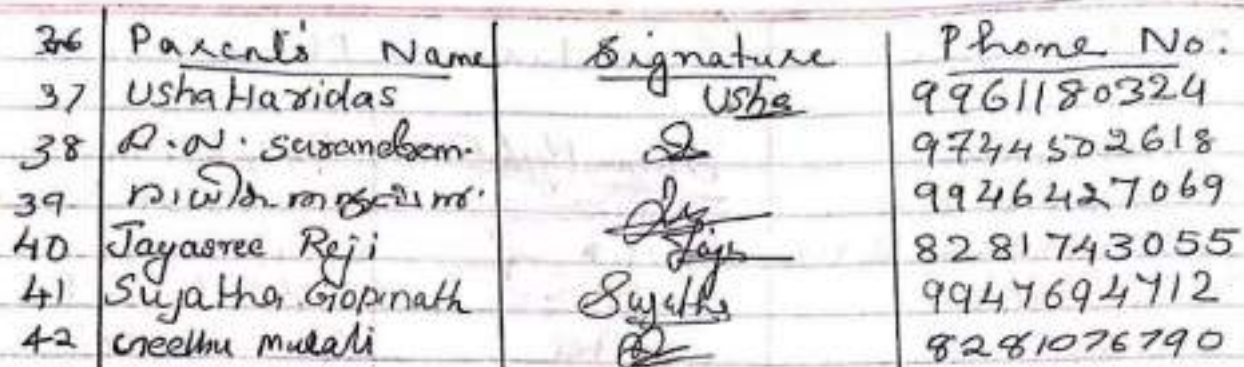 36 Parent's Name Signature Phone No.
37 Usha Haridas Usha 9961180324
38 9744502618
39 9946427069
40 Jayasree Reji 8281743055
41 Sujatha Gopinath Sujatha 9947694712
42 Murali 8281076790